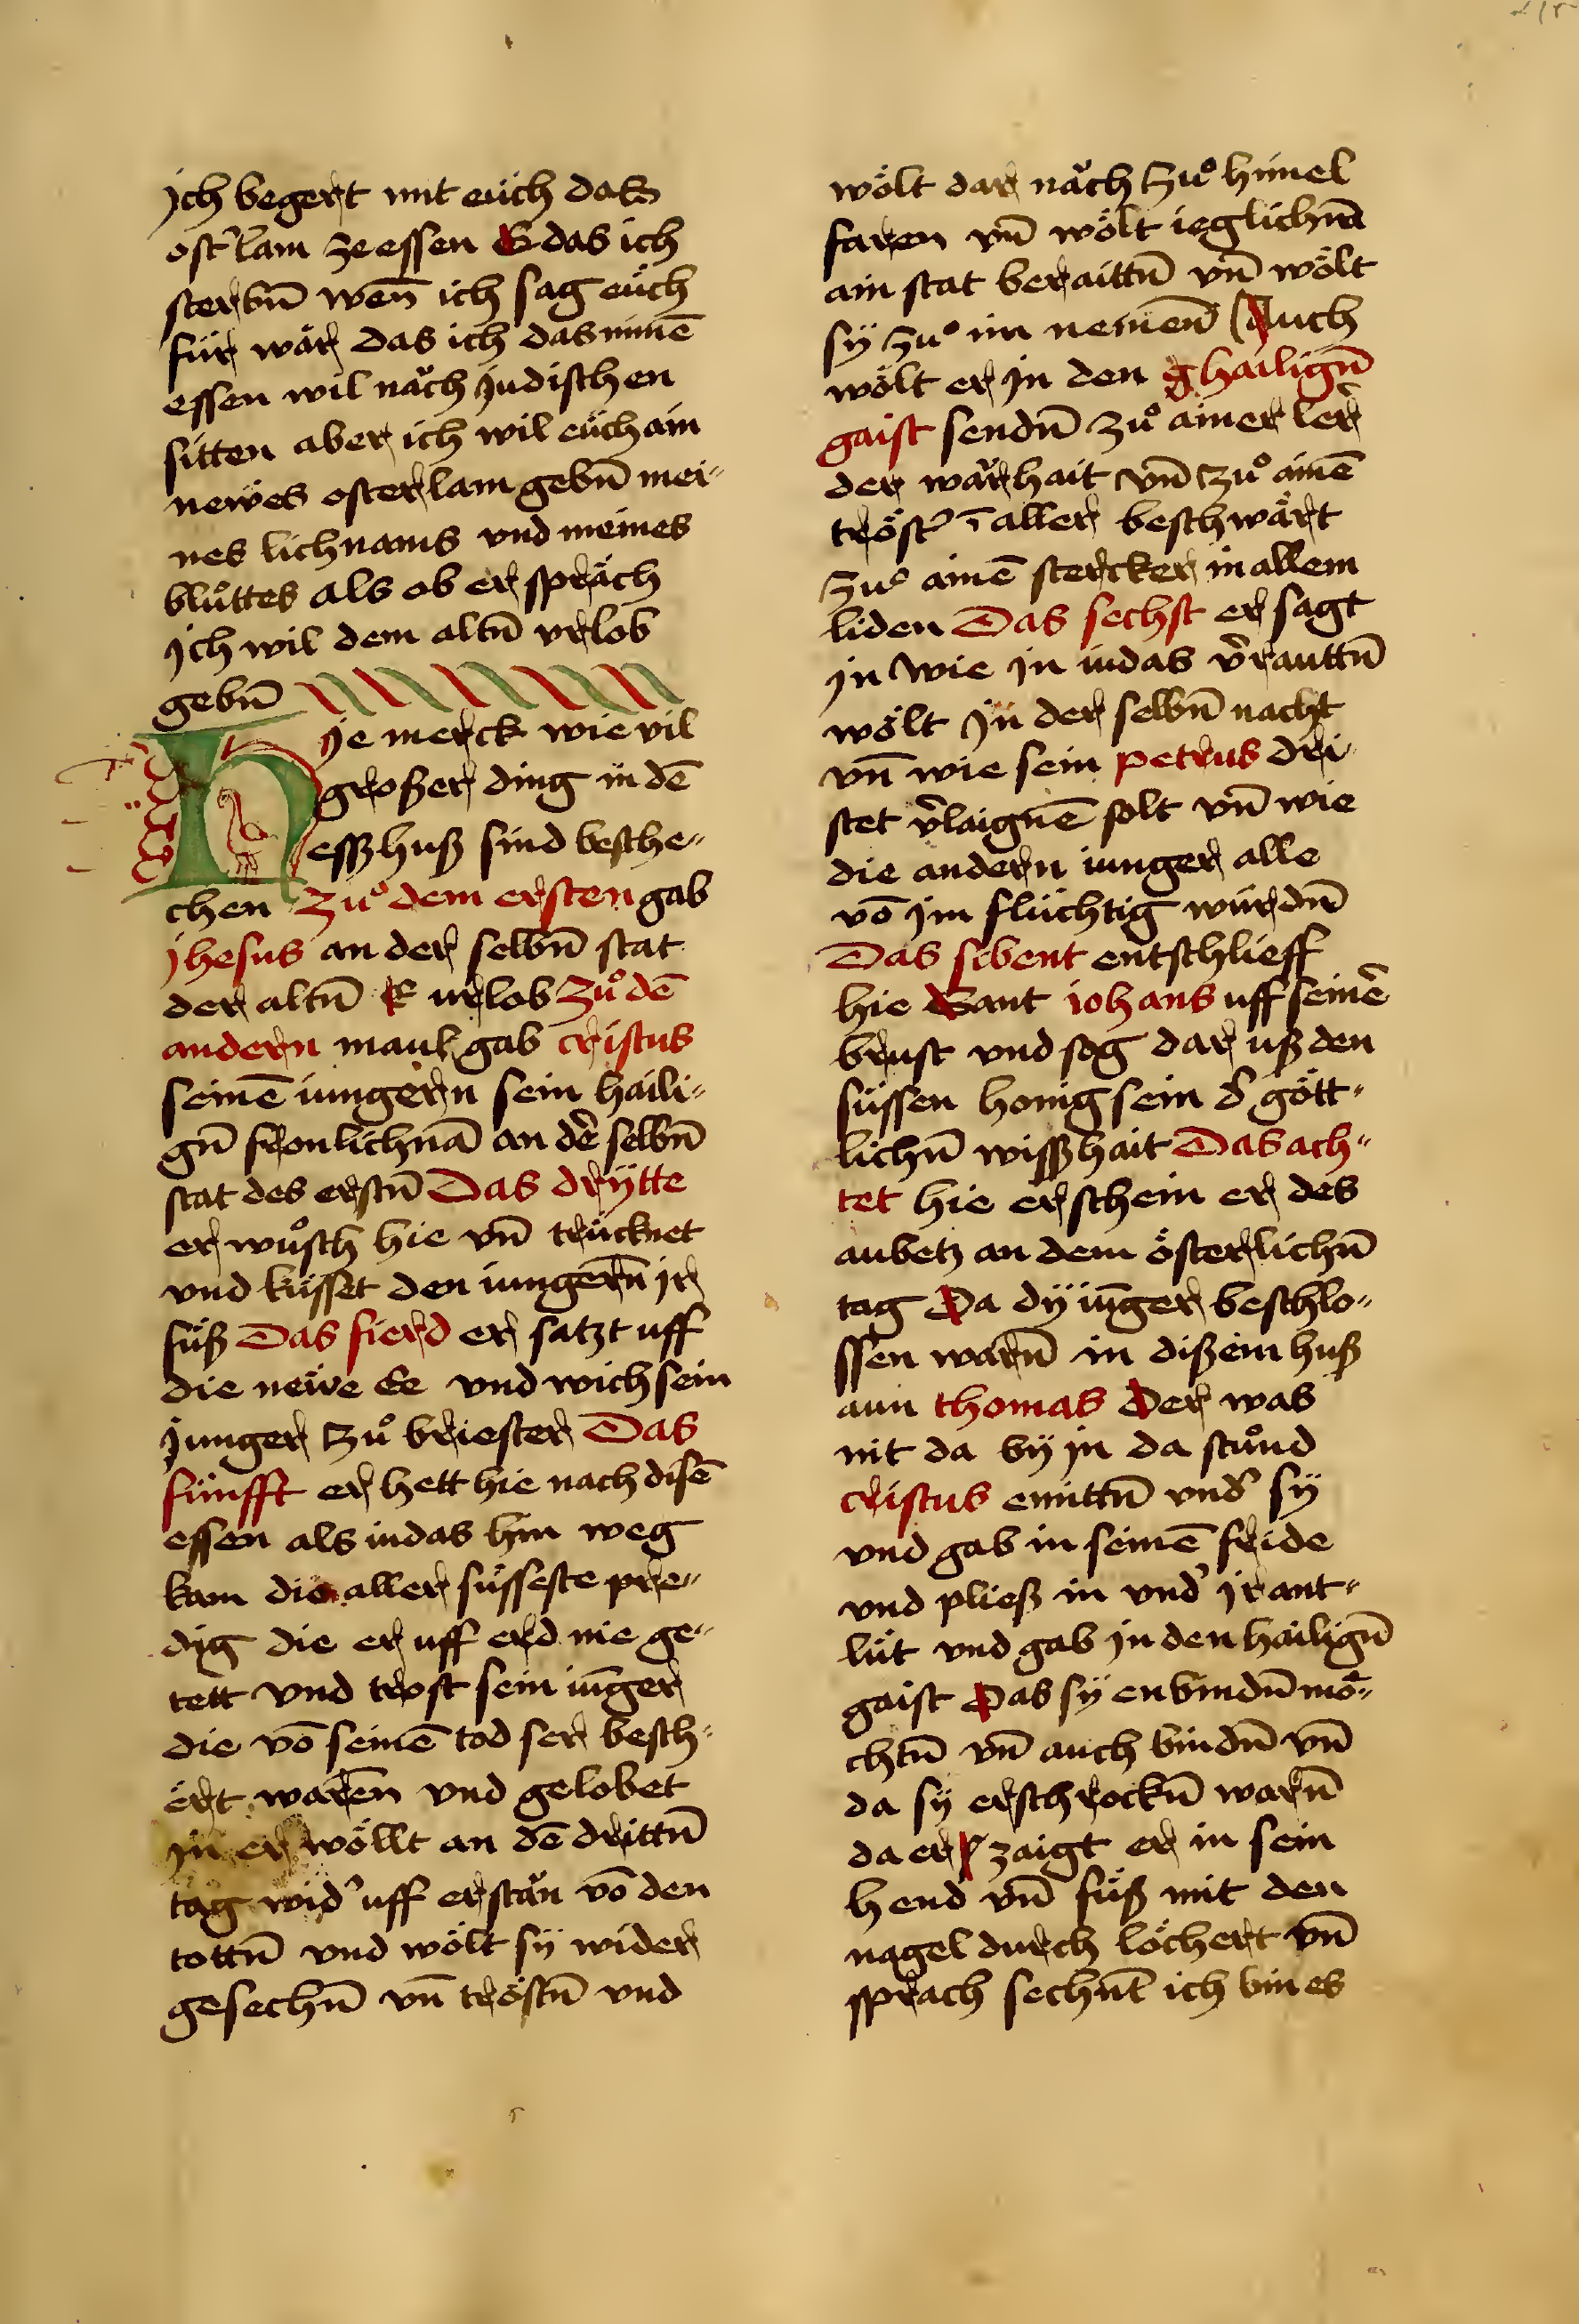 ich begert mit eüch das
ost'lam ze essen E das ich
sterbn̄ wen̄ ich sag eüch
für wär das ich das nimē
essen wil näch judischen
sitten aber ich wil eüch ain
newes osterlam gebn̄ mei-
nes lichnams vnd meines
blůttes als ob er spräch
Ich wil dem altn̄ vrlob
gebn̄
Hie merck wie vil
großer ding in dē
esszhusz sind besche-
chen zuͦ dem ersten gab
jhesus an der selbn̄ stat
der altn̄ E urlob zuͦ dē
andern maul gab cristus
seinē iungern sein haili-
gn̄ fronlichnā an d'e selbn̄
stat des erstn̄ Das drÿtte
er wuͦsch hie vn̄ trücknet
vnd küsset den iungern̄ jr
füß Das fierd er satzt uff
die newe Ee vnd wich sein
junger zuͦ briester Das
fünfft er hett hie nach disē
essen als iudas hin weg
kam die aller süsseste pre-
dig die er uff erd nie ge-
tett vnd trost sein iūnger
die vō seinē tod ser besch-
ërt waren̄ vnd gelobet
in er wöllt an dē drittn̄
tag wid' uff erstän vō den
tottn̄ vnd wölt sÿ wider
gesechn̄ vn̄ tröstn̄ vnd
wölt dar näch zuͦ himel
faren vn̄ wölt ieglichm̄
ain stat beraittn̄ vn̄ wölt
sÿ zuͦ im nemen̄ Auch
wölt er in den hailign̄
gaist sendn̄ zuͦ ainer ler
der wärhait vn̄ zuͦ ainē
tröst' ī aller beschwärt
zuͦ ainē stercker in allem
liden Das sechst er sagt
jn wie jn iudas v'rauttn̄
wölt jn der selbn̄ nacht
vn̄ wie sein petrus dri-
stet v'laignē solt vn̄ wie
die andern iunger alle
vō jm flüchtig würdn̄
Das sibent entschlieff
hie Sant iohans uff sein'e
brust vnd sog dar usz den
süssen honig sein d' gött-
lichn̄ wisszhait Das ach-
tet hie erschein er des
aubetz an dem österlichn̄
tag Da dÿ iūnger beschlo-
ssen warn̄ in dißem husz
aun thomas Der was
nit da bÿ jn da stuͦnd
cristus enmittn̄ vnd' sÿ
vnd gab in seinē fride
vnd pließ in vnd' jr ant-
lüt vnd gab jn den hailign̄
gaist Das sÿ enbindn̄ mö-
chtn̄ vn̄ auch bindn̄ vn̄
da sÿ erschrockn̄ warn̄
da er zaigt er in sein
hend vn̄ füß mit den
nagel durch löchert vn̄
sprach sechn̄t ich bin es